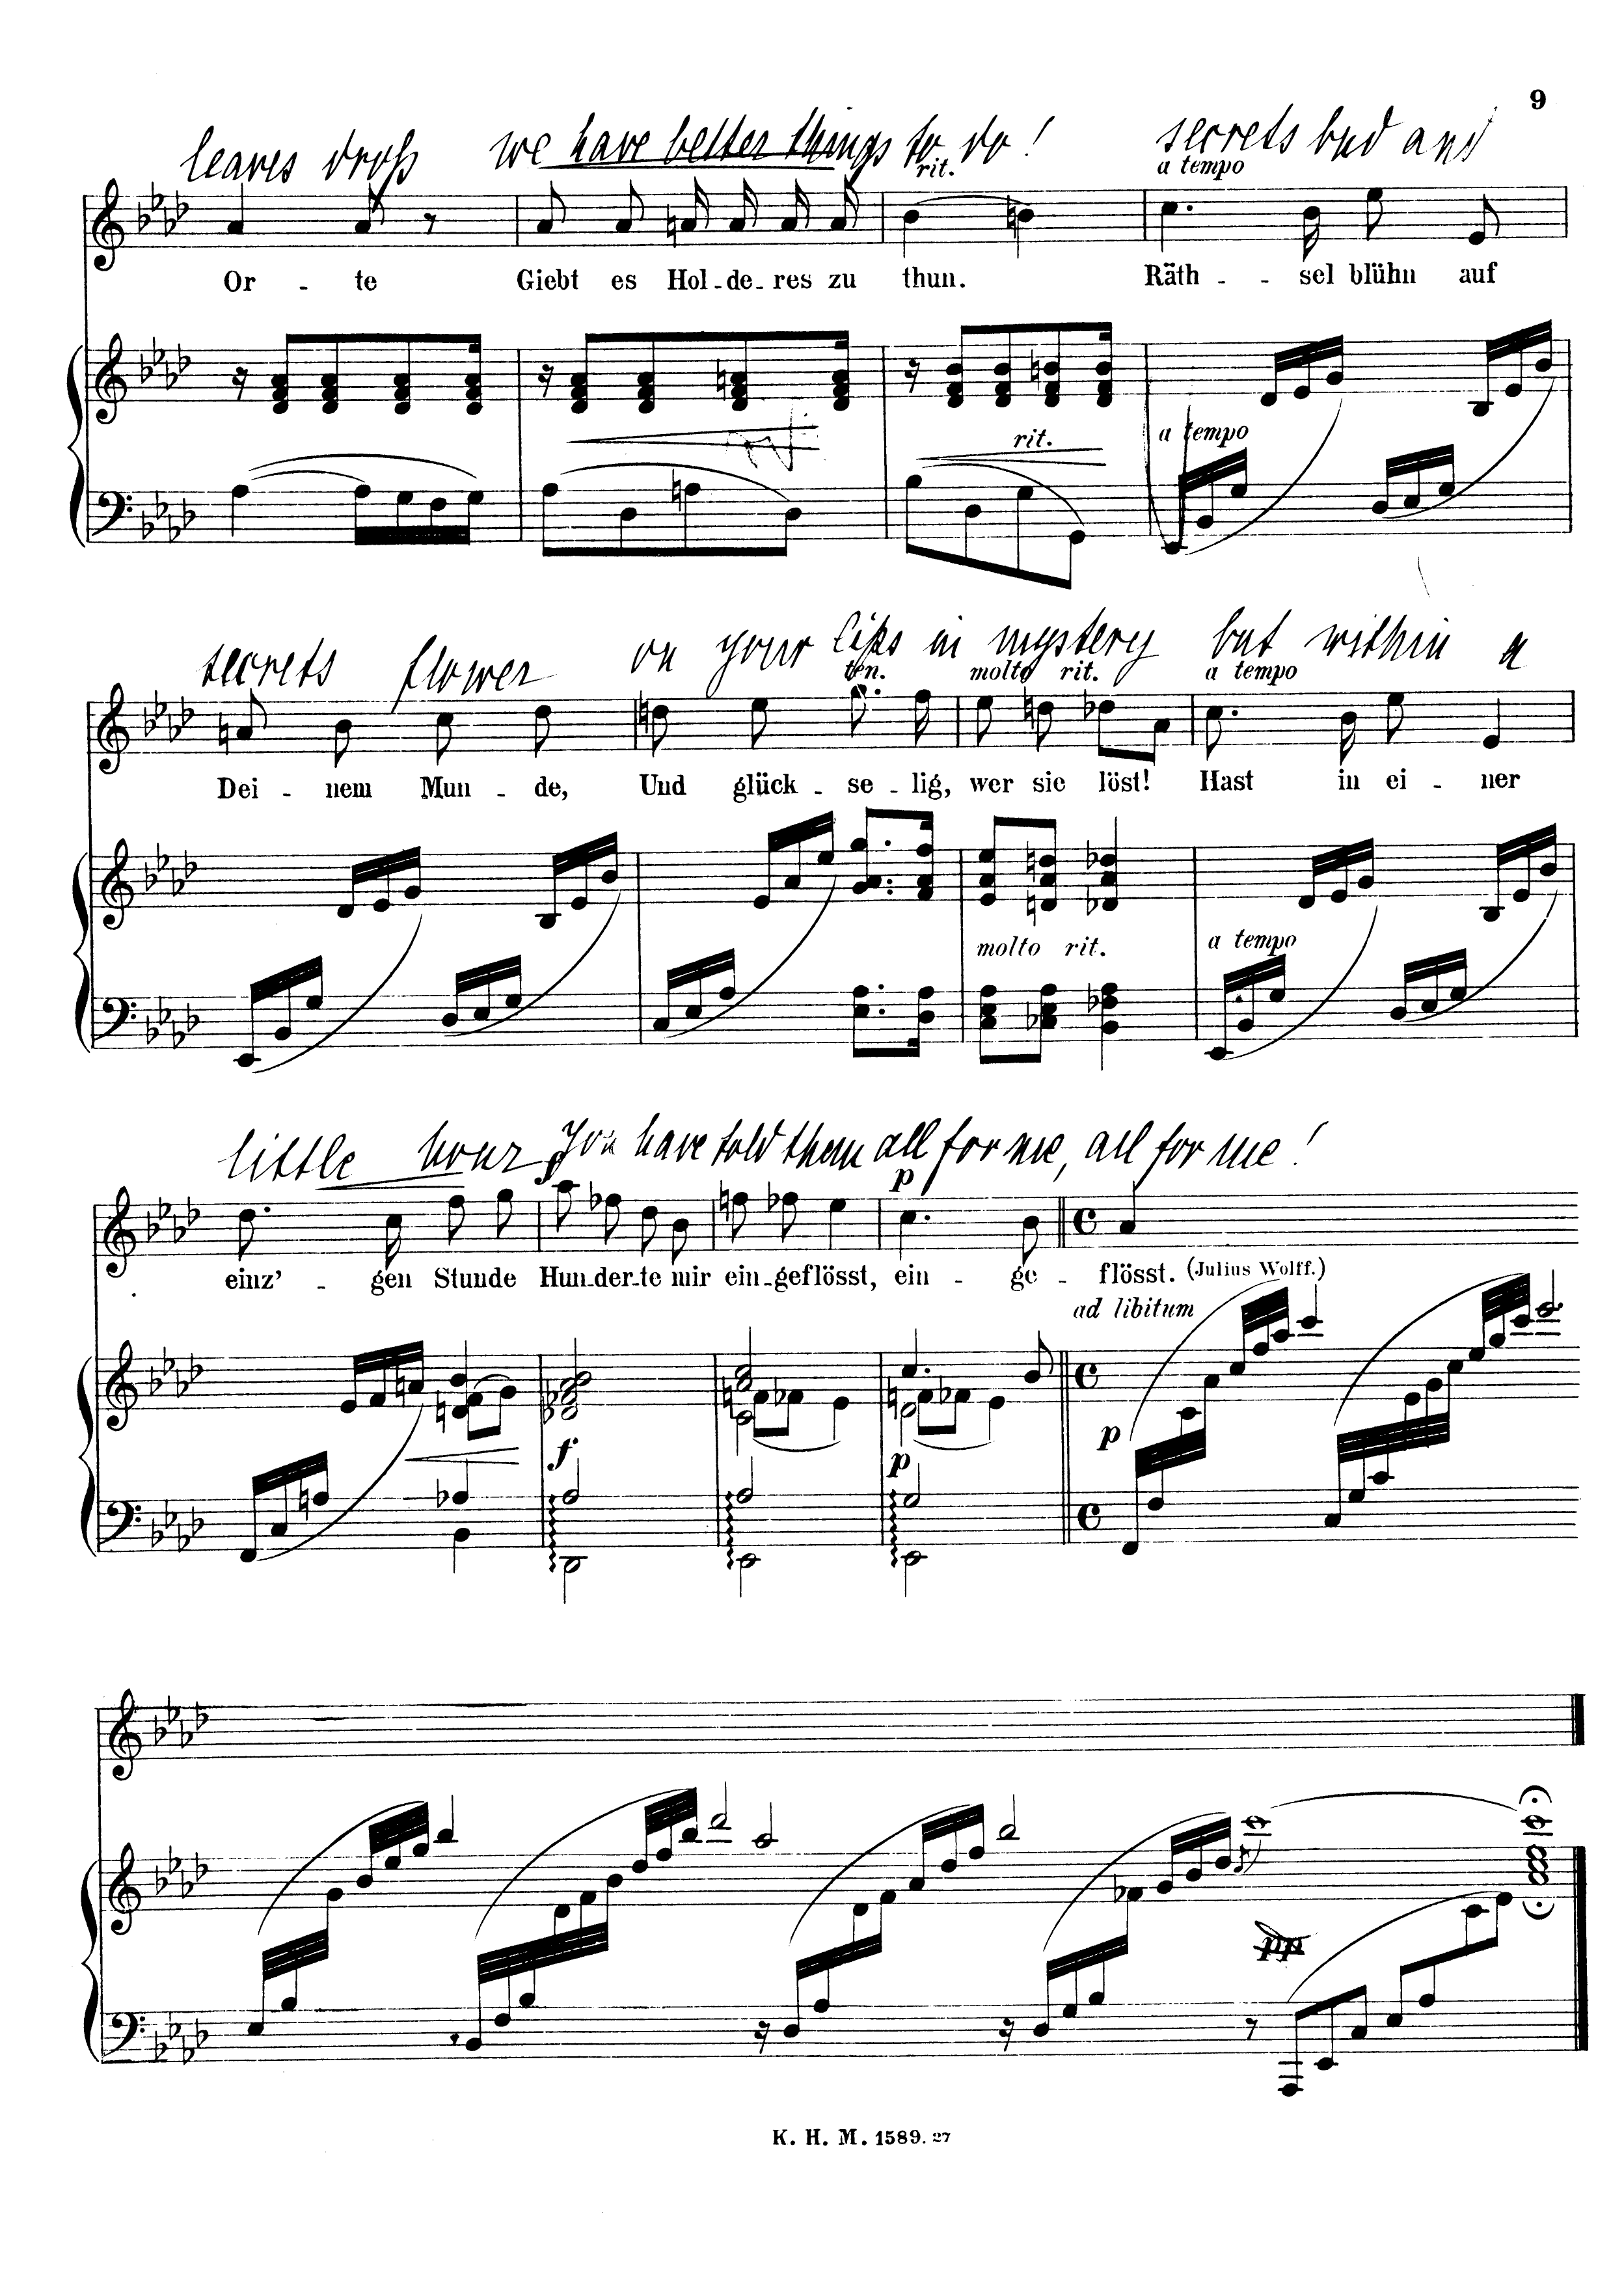 9
leaves droß we have better things to do! secrets bud and
rit. a tempo
Or - te Giebt es Hol-de-res zu thun. Räth - - sel blühn auf
rit. a tempo
secrets flower on your lips in mystery but within a
ten. molto rit. a tempo
Dei - nem Mun - de, Und glück - se - lig, wer sie löst! Hast in ei - ner
molto rit. a tempo
little hour you have told them all for me, all for me!
p
einz' - gen Stunde Hun-der-te mir ein-geflösst, ein - ge - flösst. (Julius Wolff.)
ad libitum
f p p
pp
K. H. M. 1589. 27